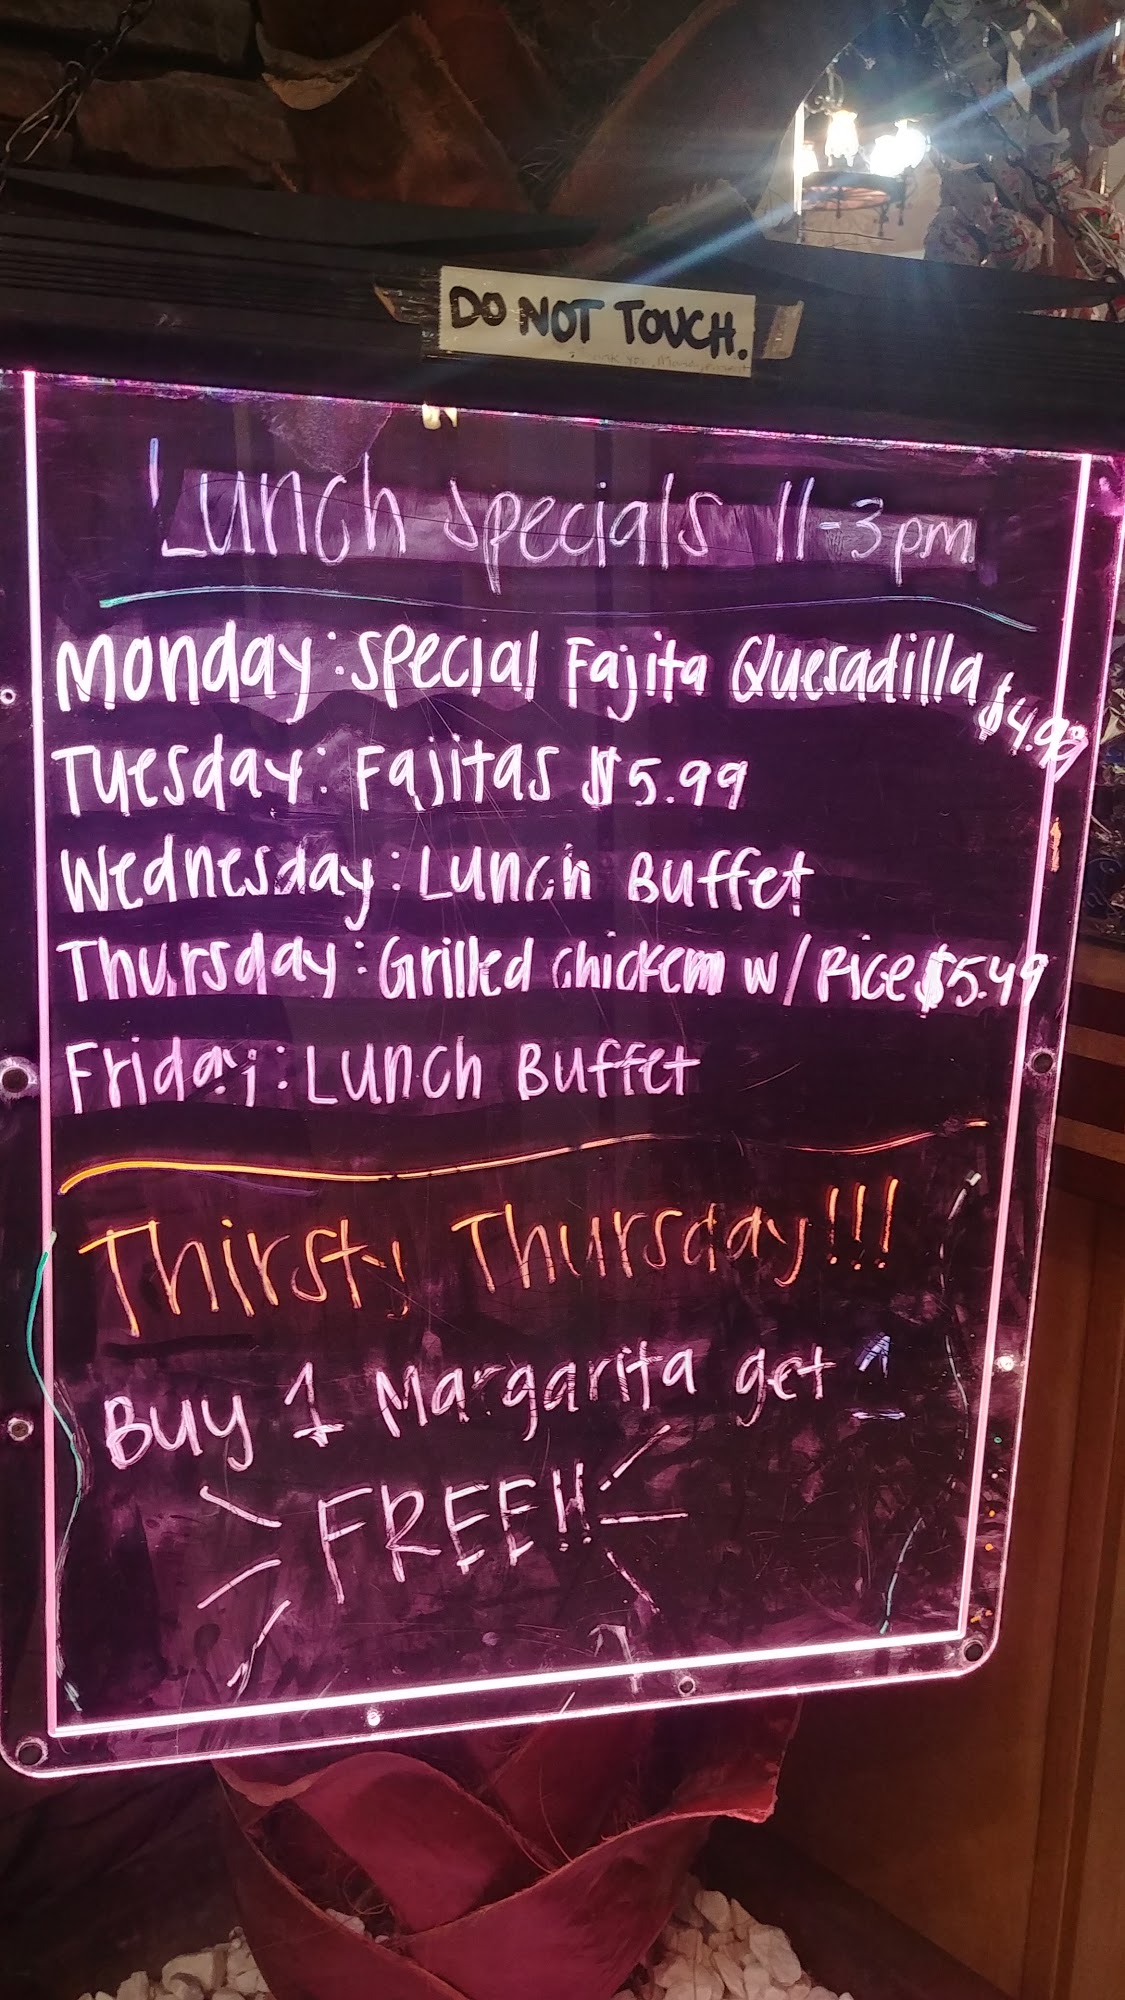 DO NOT TOUCH.
Lunch Specials 11-3pm
Monday: Special Fajita Quesadilla
Tuesday: Fajitas $5.99
Wednesday: Lunch Buffet
Thursday: Grilled chicken w/ Rice $5.49
Friday: Lunch Buffet
Thirsty Thursday!!!
Buy 1 Margarita get 1
FREE!!